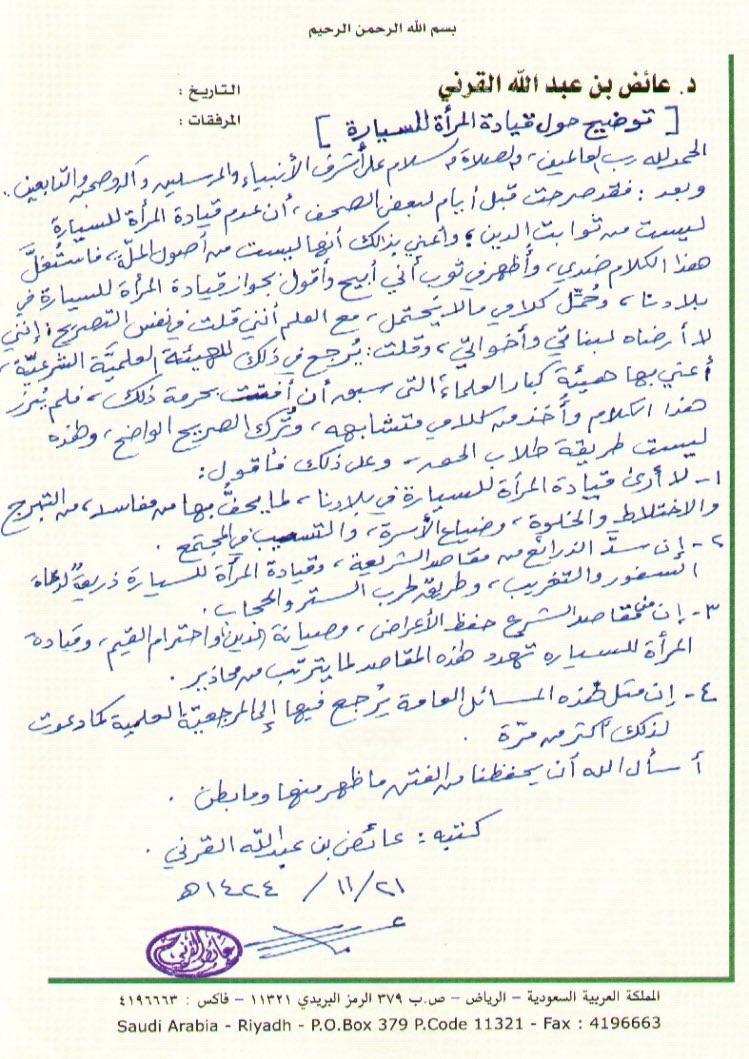 بسم الله الرحمن الرحيم
د. عائض بن عبد الله القرني
التاريخ :
المرفقات :
[ توضيح حول قيادة المرأة للسيارة ]
الحمد لله رب العالمين، والصلاة والسلام على أشرف الأنبياء والمرسلين وآله وصحبه والتابعين..
وبعد : فقد صرحت قبل أيام لبعض الصحف، أن عدم قيادة المرأة للسيارة
ليست من ثوابت الدين، وأعني بذلك أنها ليست من أصول الملّة، فاستُغلَّ
هذا الكلام ضدي، وأُظهر في ثوب أني أبيح وأقول بجواز قيادة المرأة للسيارة في
بلادنا، وحُمّل كلامي مالا يَحتمل، مع العلم أنني قلت في نفس التصريح: إنني
لا أرضاه لبناتي وأخواتي، وقلت: يُرجع في ذلك للهيئة العلميَّة الشرعيَّة،
أعني بها هيئة كبار العلماء التي سبق أن أفتت بحرمة ذلك، فلم يُبرز
هذا الكلام وأُخذ من كلامي متشابهه، وتُرك الصريح الواضح، وهذه
ليست طريقة طلاب الحق، وعلى ذلك فأقول:
١- لا أرى قيادة المرأة للسيارة في بلادنا، لما يحفُّ بها من مفاسد، من التبرج
والاختلاط والخلوة، وضياع الأسرة، والتسيب في المجتمع.
٢- إن سدَّ الذرائع من مقاصد الشريعة، وقيادة المرأة للسيارة ذريعةٌ لدعاة
السفور والتغريب، وطريق لحرب الستر والحجاب.
٣- إن من مقاصد الشرع حفظ الأعراض، وصيانة الدين واحترام القيم، وقيادة
المرأة للسياره تهدد هذه المقاصد لما يترتب من محاذير.
٤- إن مثل هذه المسائل العامة يُرجع فيها إلى المرجعيّة العلمية كما دعوت
لذلك أكثر من مرّة.
أسأل الله أن يحفظنا من الفتن ما ظهر منها وما بطن.
كتبه: عائض بن عبدالله القرني.
٢١ / ١١ / ١٤٢٤ هـ
عائض القرني
المملكة العربية السعودية – الرياض – ص.ب ٣٧٩ الرمز البريدي ١١٣٢١ – فاكس : ٤١٩٦٦٦٣
Saudi Arabia - Riyadh - P.O.Box 379 P.Code 11321 - Fax : 4196663